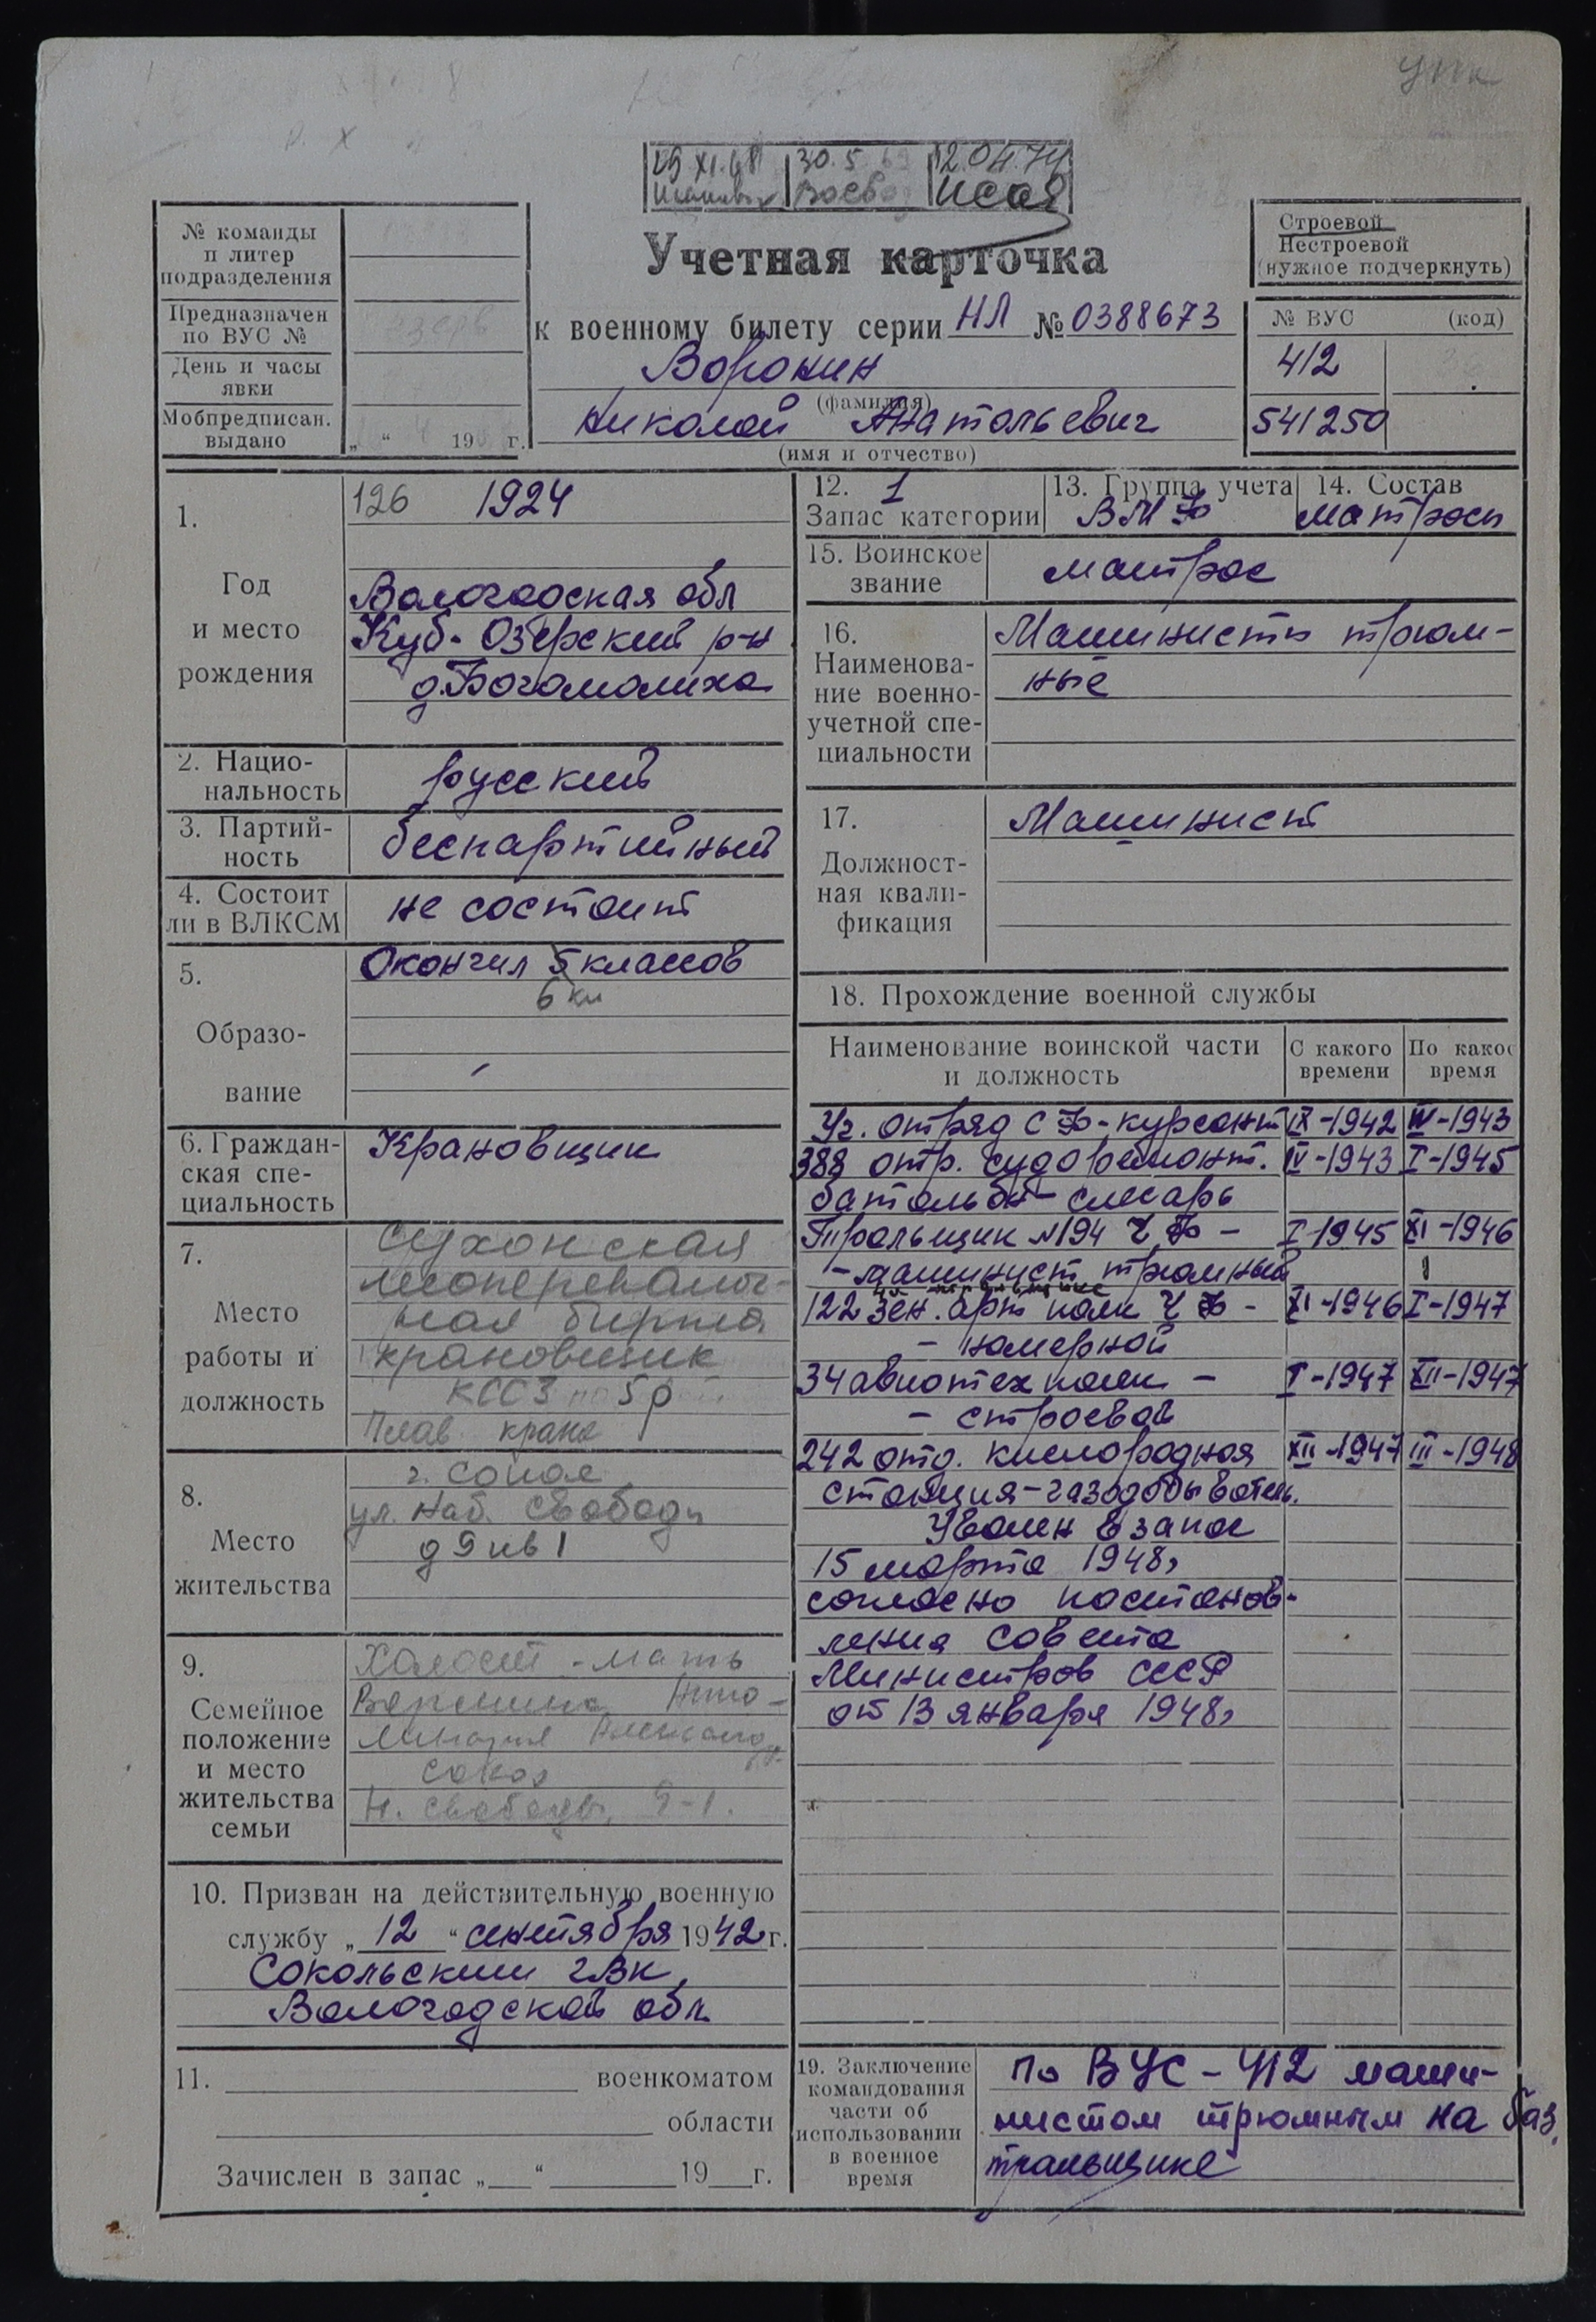 29.XI.68 30.5.69 12.04.74
№ команды
и литер
подразделения
Предназначен
по ВУС №
День и часы
явки
Мобпредписан.
выдано „ “ 19 г.
Учетная карточка
к военному билету серии НЛ № 0388673
Воронин
(фамилия)
Николай Анатольевич
(имя и отчество)
Строевой
Нестроевой
(нужное подчеркнуть)
№ ВУС (код)
412
541250
1. Год и место рождения
126 1924
Вологодская обл
Куб-Озерский р-н
д.Богомолиха
2. Нацио-
нальность
русский
3. Партий-
ность
беспартийный
4. Состоит
ли в ВЛКСМ
не состоит
5. Образо-
вание
Окончил 5 классов
6 кл
6. Граждан-
ская спе-
циальность
Крановщик
7. Место
работы и
должность
Сухонская
лесоперевалоч-
ная биржа
крановщик
КССЗ 5 р
Плав кране
8. Место
жительства
г. Сокол
ул. Наб. Свободы
д 9 кв 1
9. Семейное
положение
и место
жительства
семьи
Холост - мать
Воронина
Сокол
Н. Свободы, 9-1.
10. Призван на действительную военную
службу „12“ сентября 1942 г.
Сокольским гвк,
Вологодской обл.
11. военкоматом
области
Зачислен в запас „ “ 19 г.
12. 1
Запас категории
13. Группа учета
ВМФ
14. Состав
матросы
15. Воинское
звание
матрос
16.
Наименова-
ние военно-
учетной спе-
циальности
Машинисты трюм-
ные
17.
Должност-
ная квали-
фикация
Машинист
18. Прохождение военной службы
Наименование воинской части
и должность
С какого
времени
По какое
время
Уч. отряд СФ-курсант IX-1942 IV-1943
388 отр. судоремонт. IV-1943 I-1945
батальон - слесарь
Тральщик №194 ЧФ - I-1945 XI-1946
- машинист трюмный
на тральщике
122 зен. арт полк ЧФ - XI-1946 I-1947
- номерной
34 авиотех полк - I-1947 XII-1947
- строевой
242 отд. кислородная XII-1947 III-1948
станция-газодобыватель.
Уволен в запас
15 марта 1948г
согласно постанов-
ления Совета
Министров СССР
от 13 января 1948г
19. Заключение
командования
части об
использовании
в военное
время
по ВУС-412 маши-
нистом трюмным на баз.
тральщике